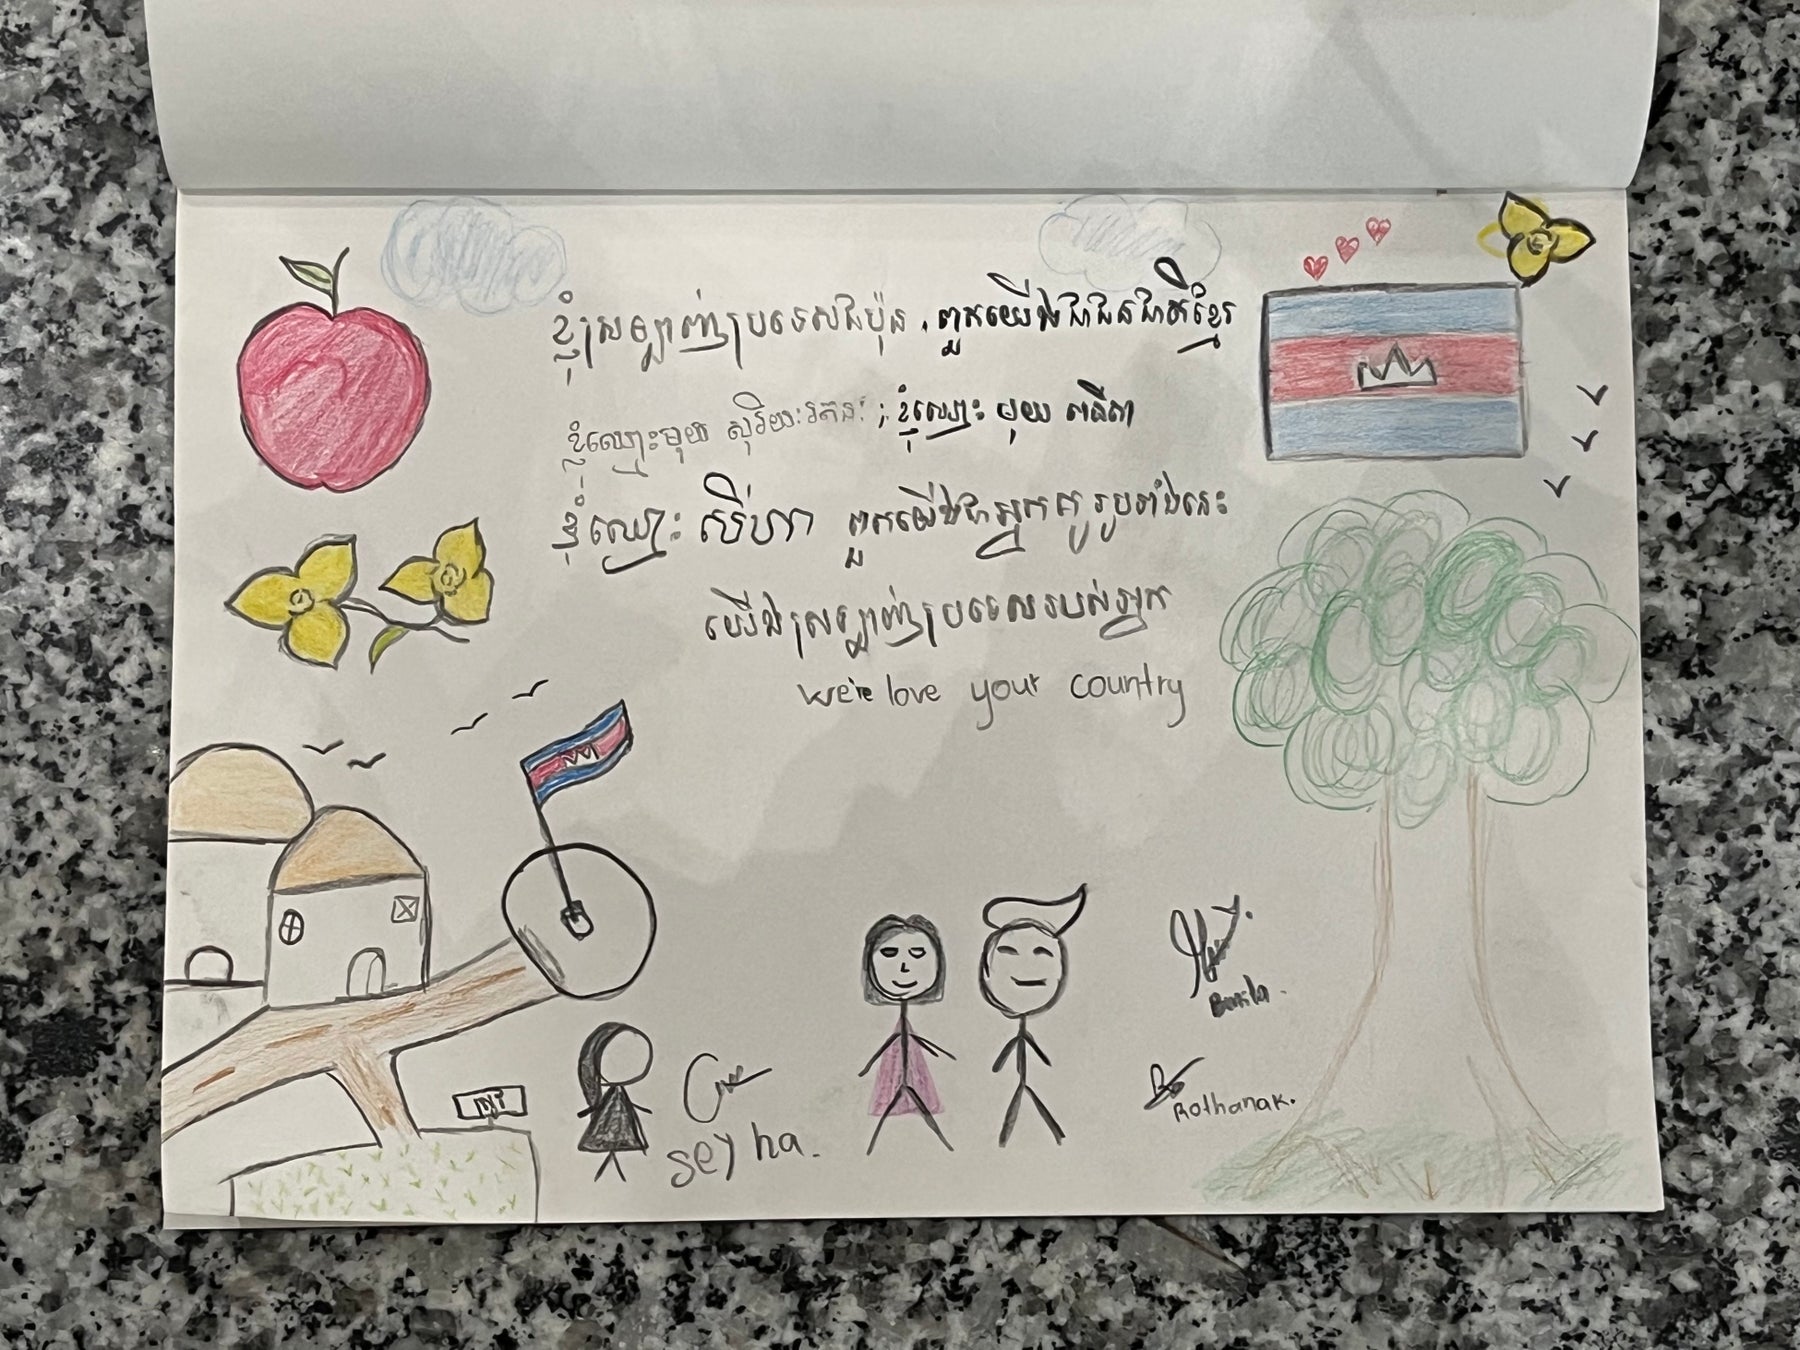 ខ្ញុំស្រឡាញ់ប្រទេសជប៉ុន . ពួកយើងជាជនជាតិខ្មែរ
ខ្ញុំឈ្មោះមុយ សុរិយៈរតនៈ ; ខ្ញុំឈ្មោះ មុយ ពនីតា
ខ្ញុំឈ្មោះ សីហា ពួកយើងជាអ្នកគូររូបទាំងនេះ
យើងស្រឡាញ់ប្រទេសរបស់អ្នក
we're love your country
seyha.
Rothanak.